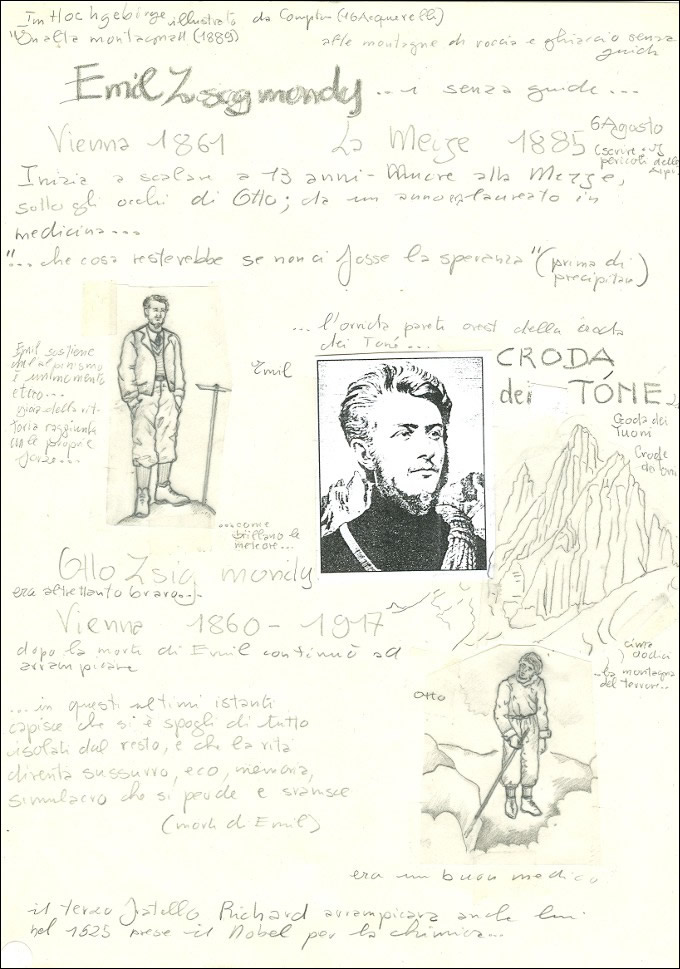 Im Hochgebirge illustrato da Compton (16 Acquerelli)
"Un'alta montagna" (1889)
alte montagne di roccia e ghiaccio senza
guide
Emil Zsigmondy ... i senza guide ...
Vienna 1861 La Meige 1885 6 Agosto
(scrive: "I
pericoli delle
Alpi"
Inizia a scalare a 13 anni - Muore alla Meige,
sotto gli occhi di Otto; da un anno laureato in
medicina...
"... che cosa resterebbe se non ci fosse la speranza" (prima di
precipitare)
... l'orrida parete ovest della croda
dei Toné ...
Emil sostiene
che l'alpinismo
è unicamente
etico...
gioia della vit-
toria raggiunta
con le proprie
forze...
Emil
CRODA
dei TÓNE
Croda dei
Tuoni
Crode
dei toni
... come
brillano le
meteore...
Otto Zsigmondy
era altrettanto bravo...
Vienna 1860 - 1917
dopo la morte di Emil continuò ad
arrampicare
cima
dodici
... la montagna
del terrore...
Otto
... in questi ultimi istanti
capisce che si è spogli di tutto
isolati dal resto, e che la vita
diventa sussurro, eco, memoria,
simulacro che si perde e svanisce
(morte di Emil)
era un buon medico
il terzo fratello Richard arrampicava anche lui
nel 1525 prese il Nobel per la chimica...